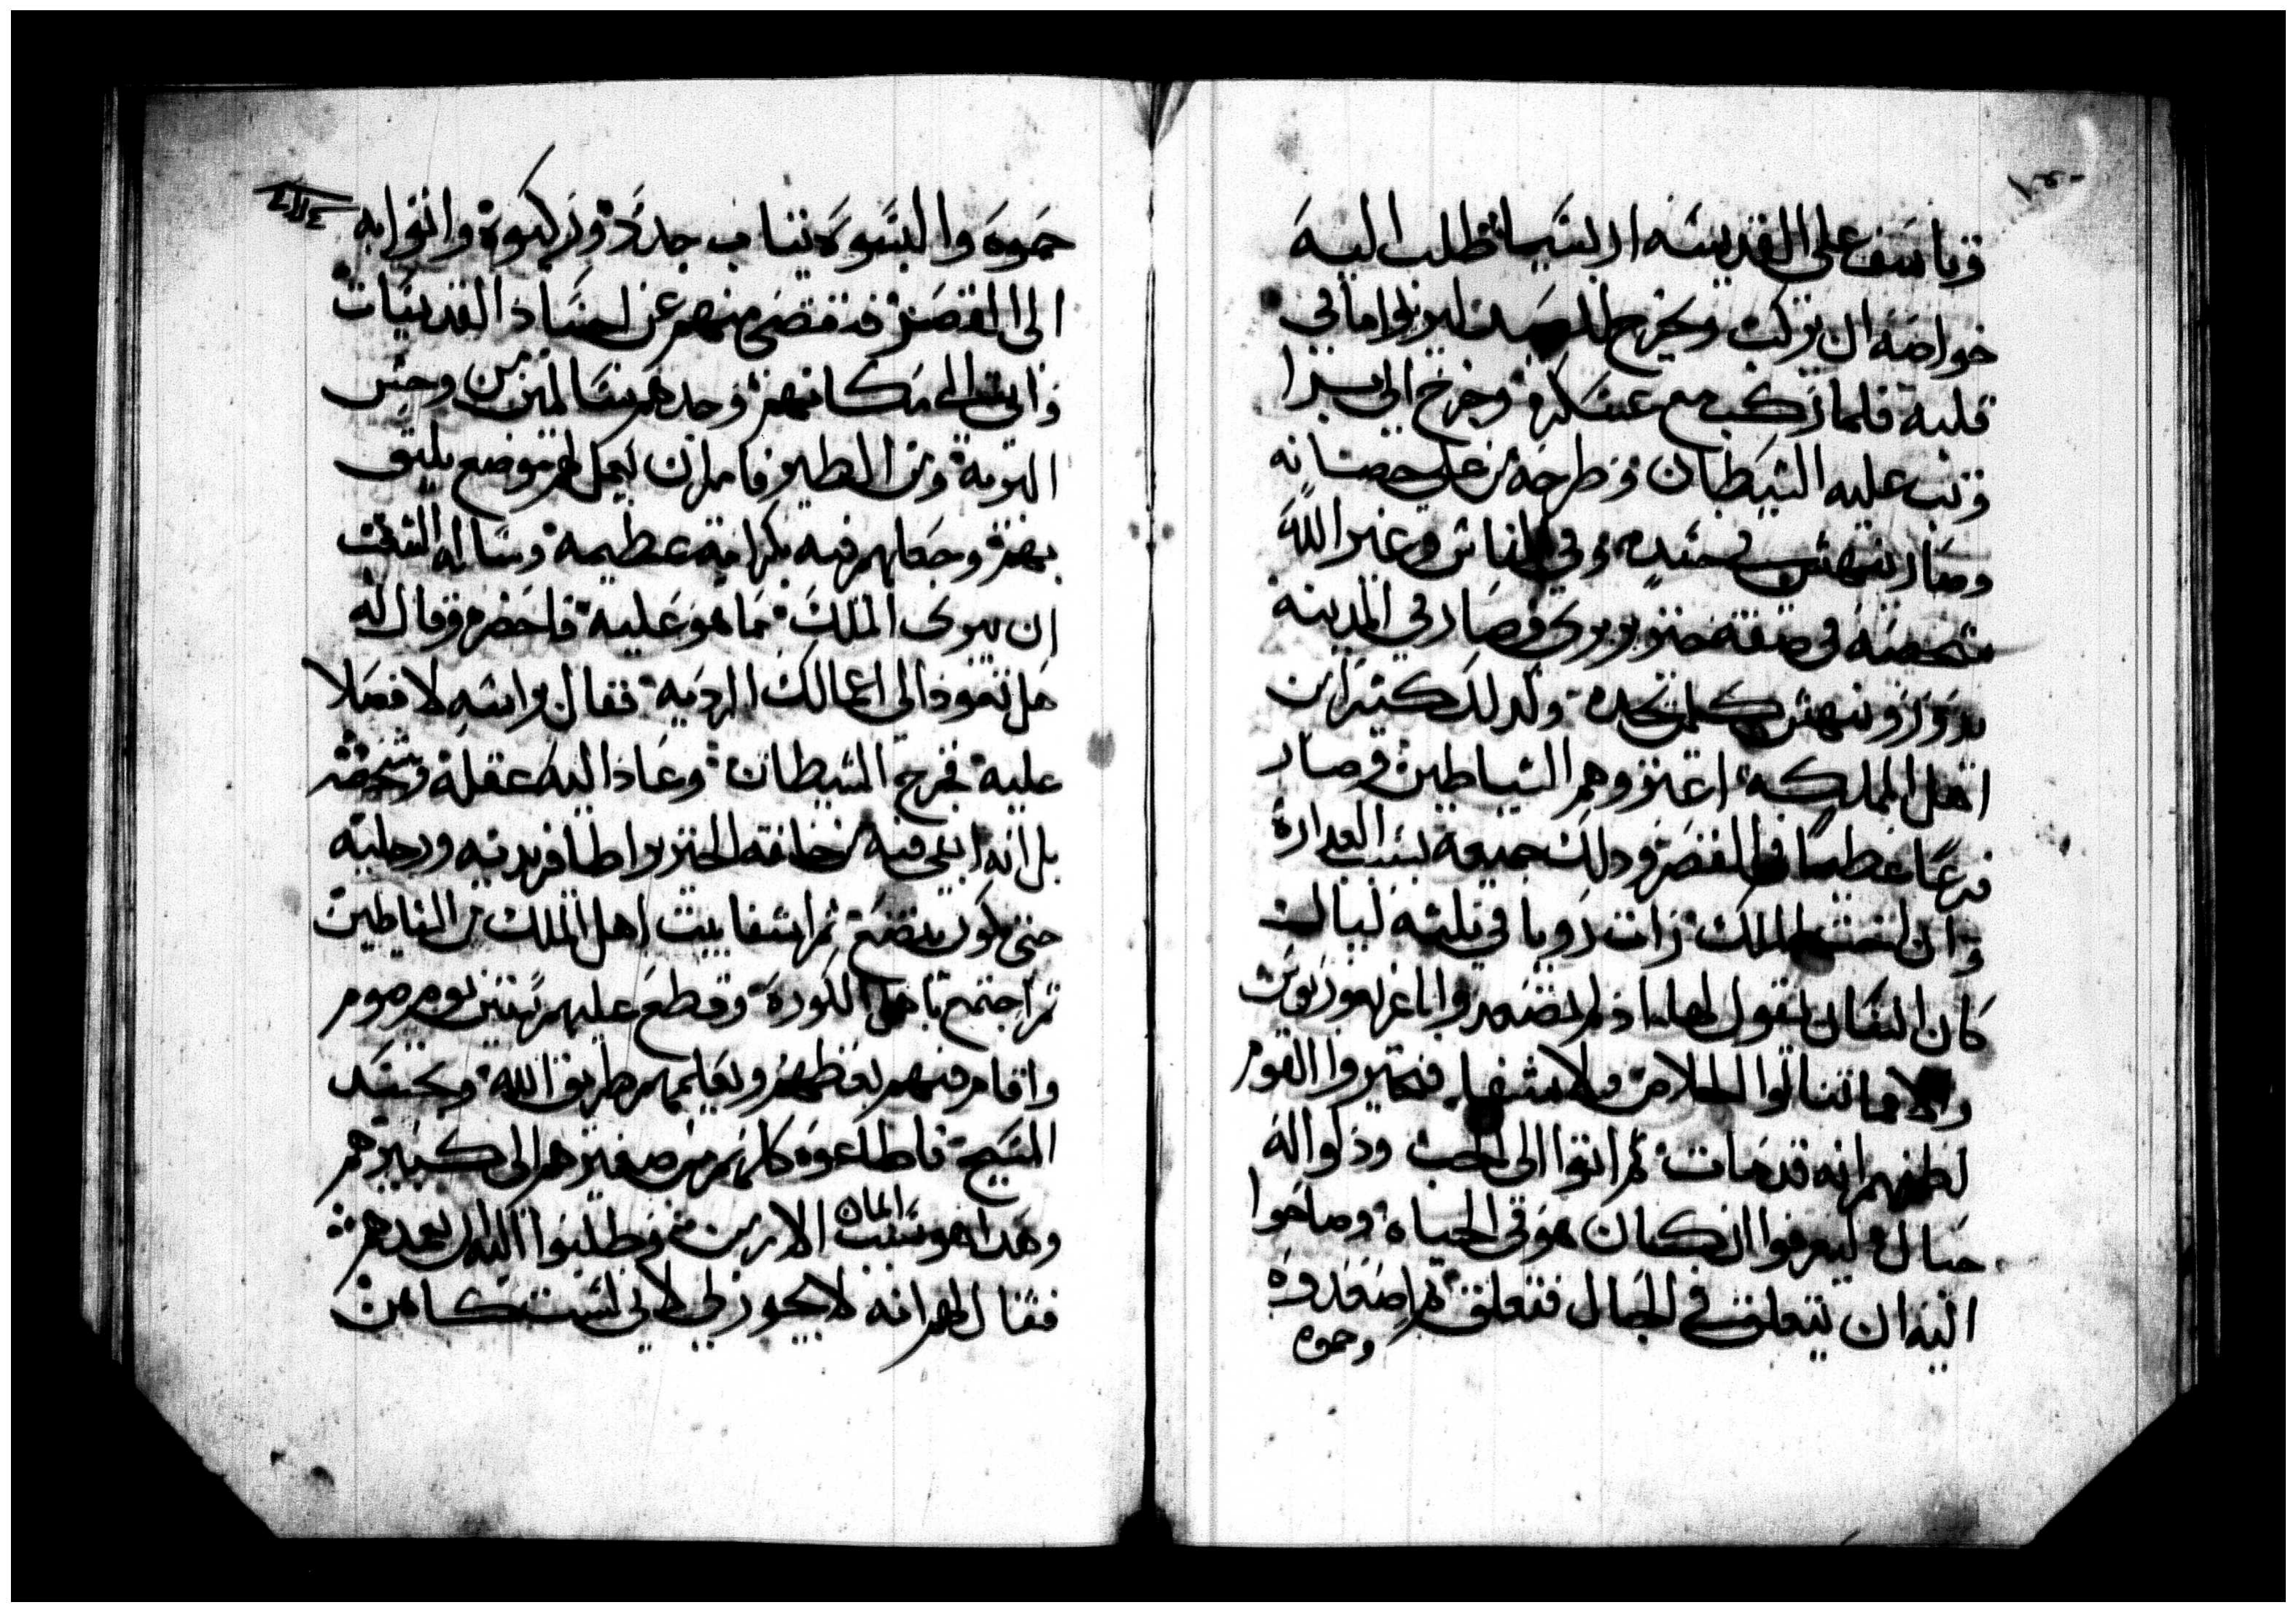 وتاسف على القديسه اربسيما فطلب اليه
خواصه ان يركب ويخرج للصيد ليزيل ما في
قلبه فلما ركب مع عسكره وخرج الى برا
وثب عليه الشيطان وطرحه من على حصانه
وصار ينهش في جسده وفي الناس وغير الله
شخصه في صفة خنزير بري وصار في المدينه
يدور وينهش كلمن يجده وكدلك كثير من
اهل المملكه اعتروهم الشياطين وصار
فزعا عظيما في القصر ودلك جميعه بسبب العداره
وان اخت الملك رات رويا في ثلثة ليالى
كان انسان يقول لها اذ لم تصعدوا اغريغوريوس
والا ما تنالوا الخلاص ولا شفا فتحيروا القوم
لظنهم انه قد مات ثم اتوا الى الجب ودلوا له
حبال ليعرفوا ان كان هو في الحياه وصاحوا
اليه ان يتعلق في الحبال فتعلق ثم اصعدوه
وحموه
حموه والبسوه ثياب جدد وركبوه واتوا به
الى القصر فتقصى منهم عن اجساد القديسات
واتى الى مكانهم وجدهم سالمين من وحش
البريه ومن الطير فامر ان يعمل لهم موضع يليق
بهم وجعلهم فيه بكرامه عظيمه وساله الشعب
ان يبرى الملك مما هو عليه فاحضره وقال له
هل تعود الى اعمالك الرديه فقال براسه لا فصلا
عليه فخرج الشيطان وعاد اليه عقله وشخصه
بل انه ابقى فيه خلقه الخنزير اظافر يديه ورجليه
حتى يكون يتضع ثم اشفا بيت اهل الملك من الشياطين
ثم اجتمع باهل الكوره وقطع عليهم ستين يوم صوم
واقام فيهم يعظهم ويعلمهم طريق الله وتجسد
المسيح فاطاعوه كلهم من صغيرهم الى كبيرهم
وهدا هو سبب ايمان الارمن وطلبوا اليه ان يعمدهم
فقال لهم انه لا يجوز لي لاني لست كاهن